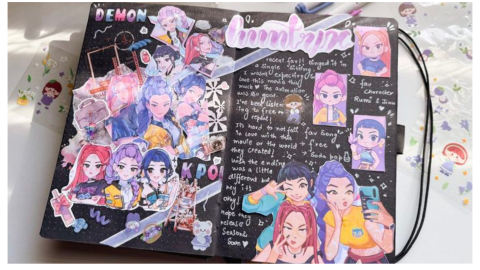 DEMON
huntrix
KPOP
recent fav!! binged it in
a single sitting
I wasn't expecting to
love this movie this
much ♥ The animation
was so good.
I've been listen
-ing to free on
repeat!
It's hard to not fall
in love with this
movie or the world
they created!
with the ending
was a little
different but
my its
okay!
hope they
release
Season 2
soon ♥
fav
character
Rumi & Jinu
fav song
→ free
→ Soda pop